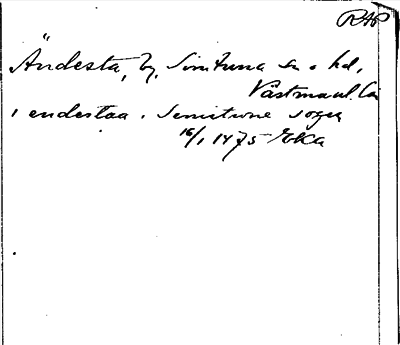 RAP
Ändesta, by, Simtuna sn o hd,
Västmanl. län
i endestaa i Semitune sogn
16/1 1475 EKA